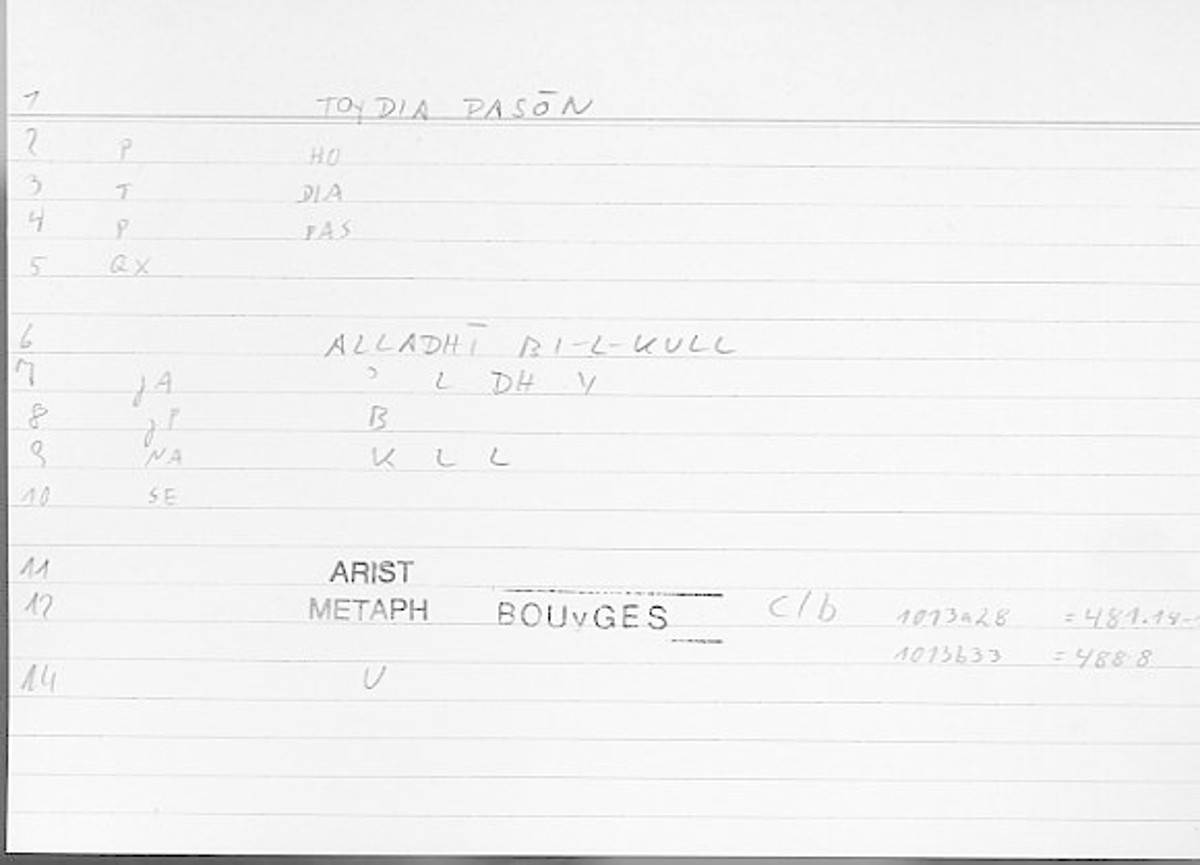 1 TOY DIA PASŌN
2 P HO
3 T DIA
4 P PAS
5 QX
6 ALLADHĪ BI-L-KULL
7 jA ʾ L DH Y
8 jP B
9 NA K L L
10 SE
11 ARIST
12 METAPH BOUvGES C/b 1013a28 = 481.14-
1013b33 = 488.8
14 U